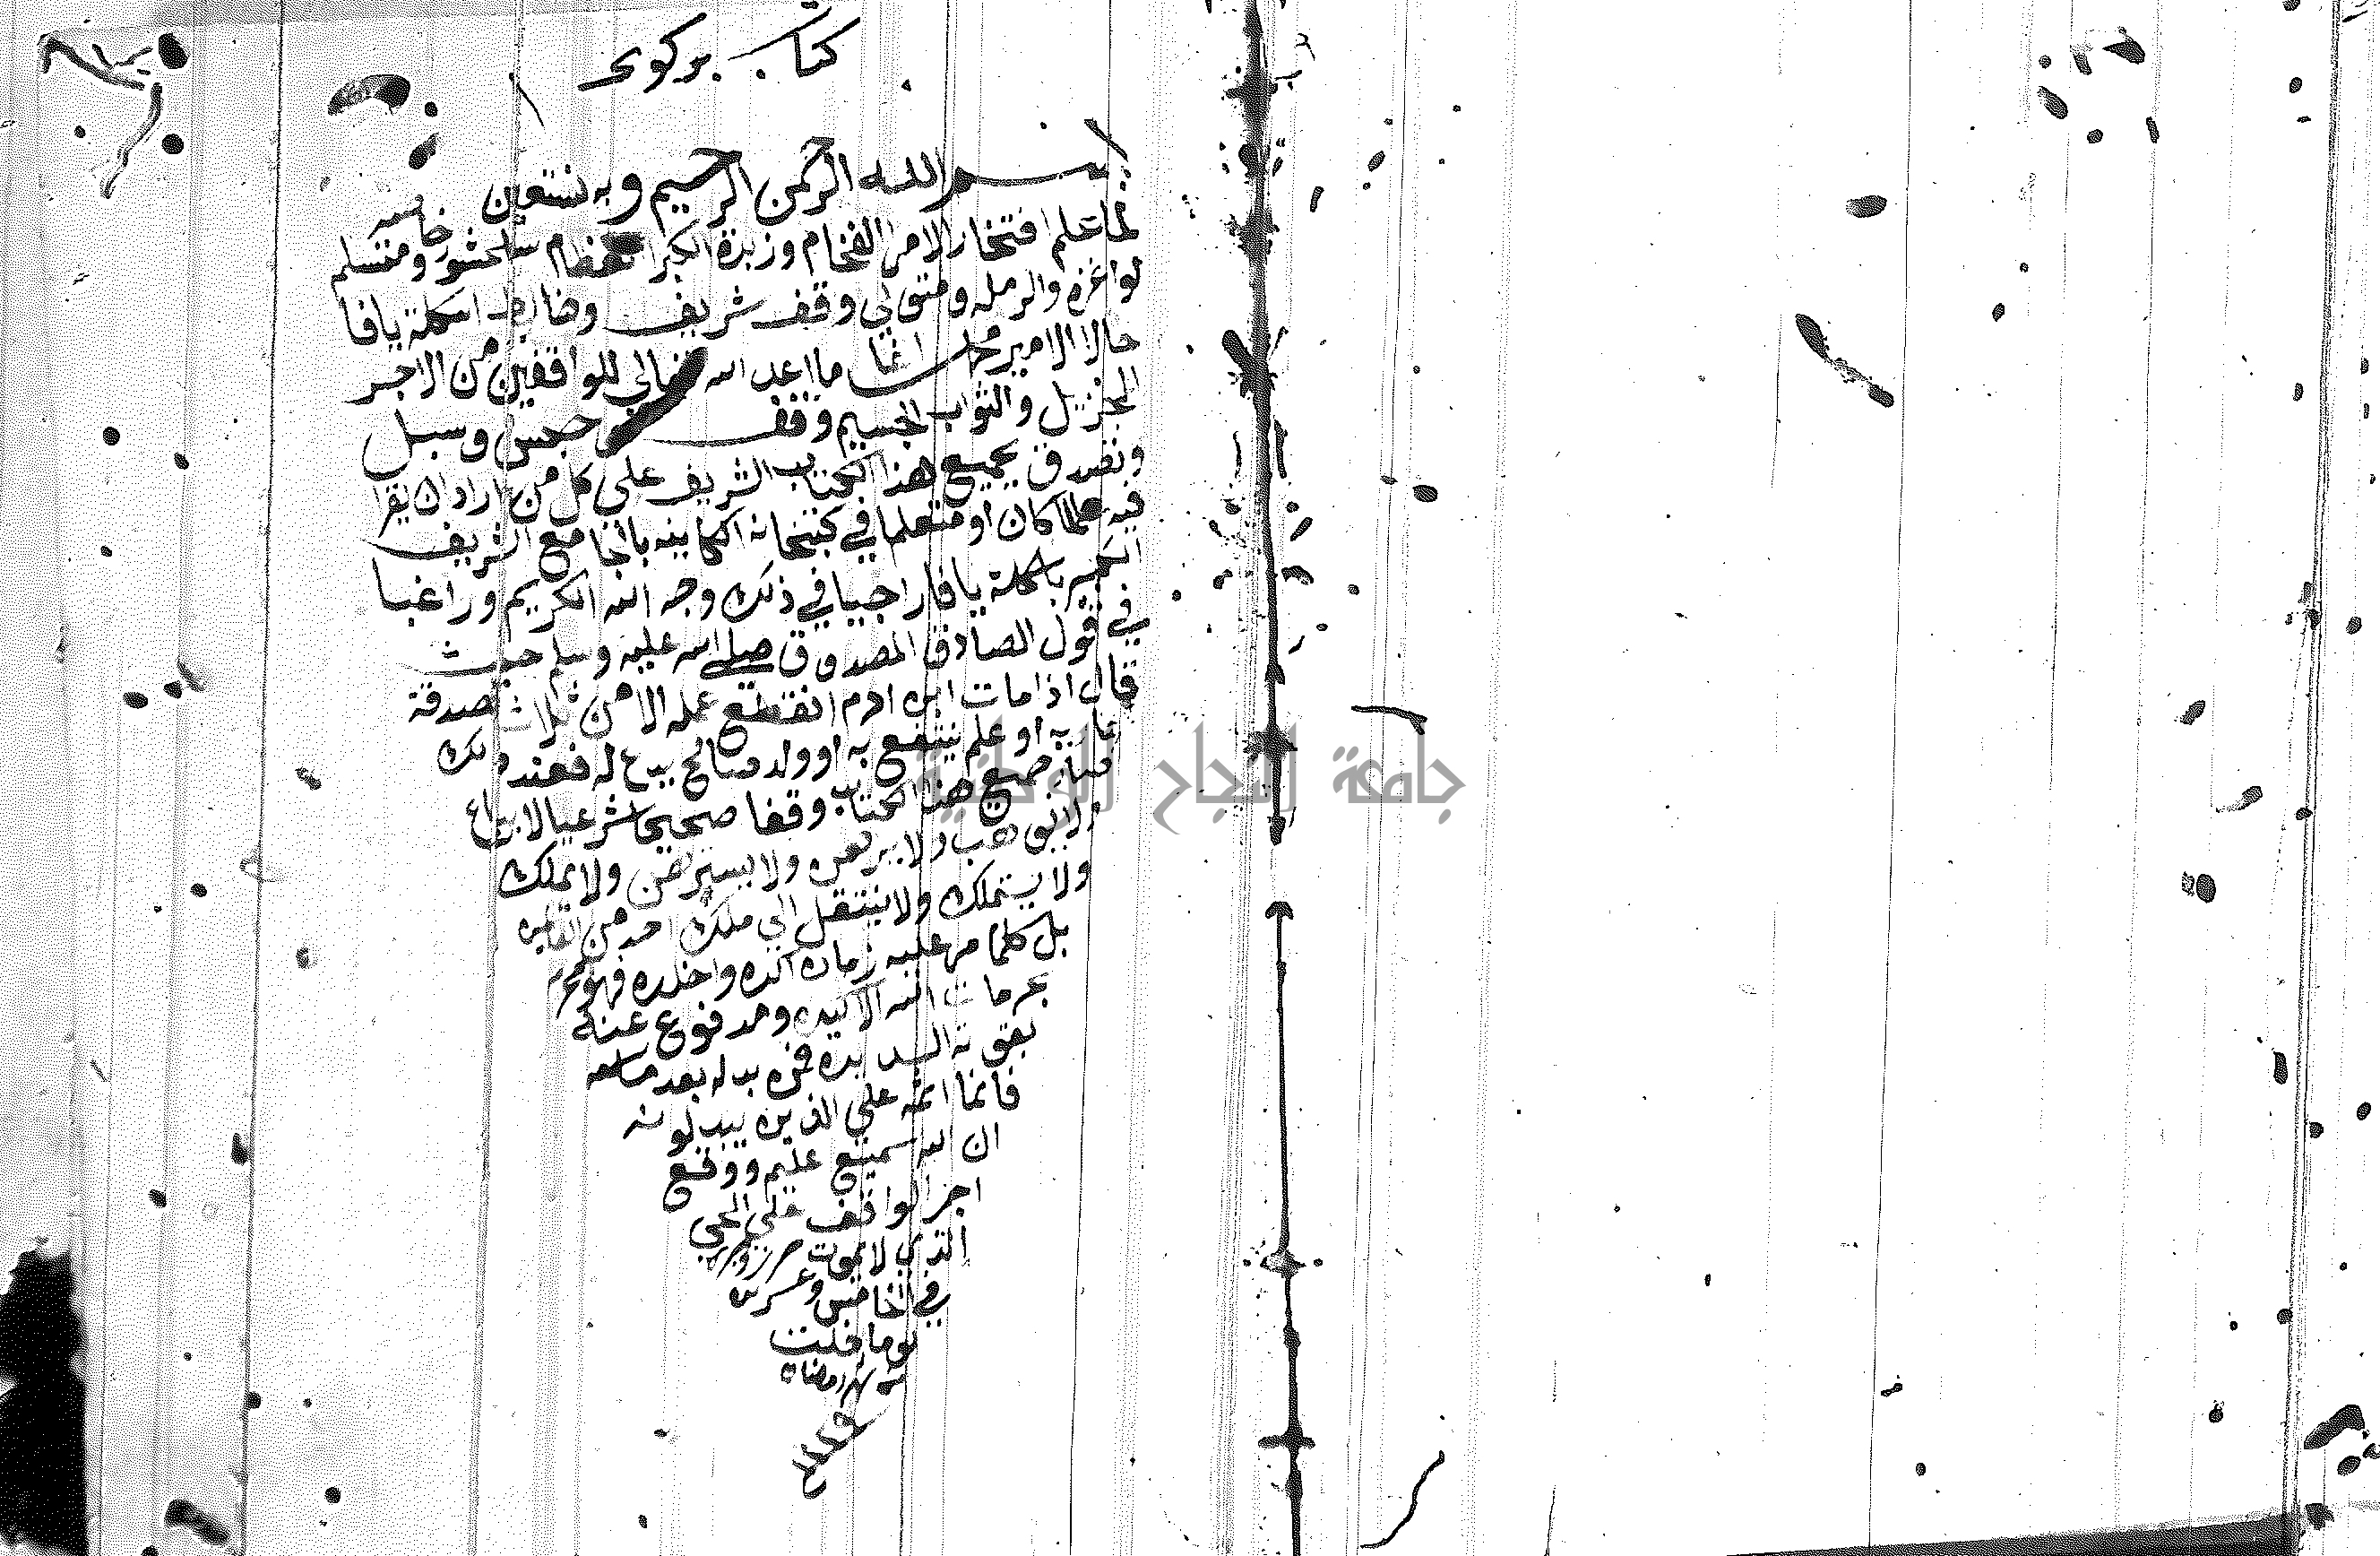 كتاب بركوي
بسم الله الرحمن الرحيم وبه نستعين
لما علم افتخار الامرا الفخام وزبدة الكبرا سلحشور خاصه ومتسلم
لوا غزه والرمله ومتولي وقف شريف وضابط اسكلة يافا
حالا الامير محمد اغا ما اعد الله تعالي للواقفين من الاجر
الجزيل والثواب الجسيم وقف وحبس وسبل
وتصدق بجميع هذا الكتاب الشريف علي كل من اراد ان يقرا
فيه عالما كان او متعلما في كتبخانه الكاينه بالجامع الشريف
الكبير باسكلة يافا راجيا في ذلك وجه الله الكريم وراغبا
في قول الصادق المصدوق صلي الله عليه وسلم حيث
قال اذا مات ابن ادم انقطع عمله الا من ثلاث صدقة
جاريه او علم ينتفع به او ولد صالح يدع له فعند ذلك
صار جميع هذا الكتاب وقفا صحيحا شرعيا لا يباع
ولا يوهب ولا يرهن ولا يسترهن ولا يملك
ولا يستملك ولا ينتقل الي ملك احد من الناس
بل كلما مر عليه زمان اكده واخلده فهو محرم
بحرمات الله الاكيده ومدفوع عنه
بقوته الشديدة فمن بدله بعد ما سمعه
فانما اثمه علي الذين يبدلونه
ان الله سميع عليم ووقع
اجر الواقف علي الحي
الذي لا يموت حرر وجري
في الخامس وعشرين
يوما خلت
من شهر رمضان
جامعة النجاح الوطنية